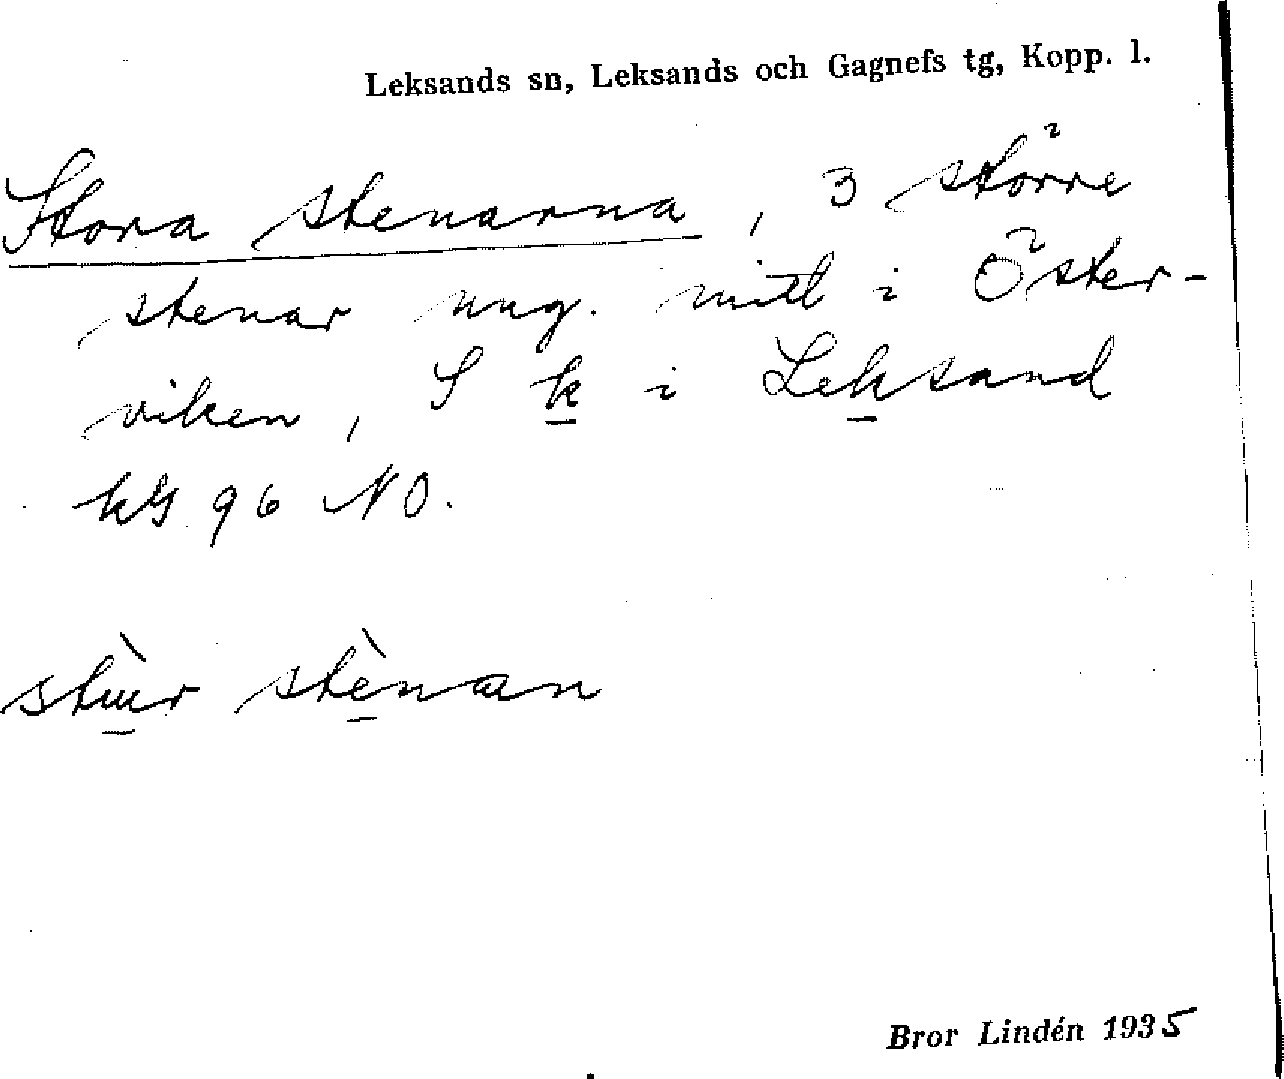 Leksands sn, Leksands och Gagnefs tg, Kopp. l.
Stora stenarna, 3 större
stenar ung. mitt i Öster-
viken, S k i Leksand
kG 96 NO.
stɯr stènan
Bror Lindén 1935